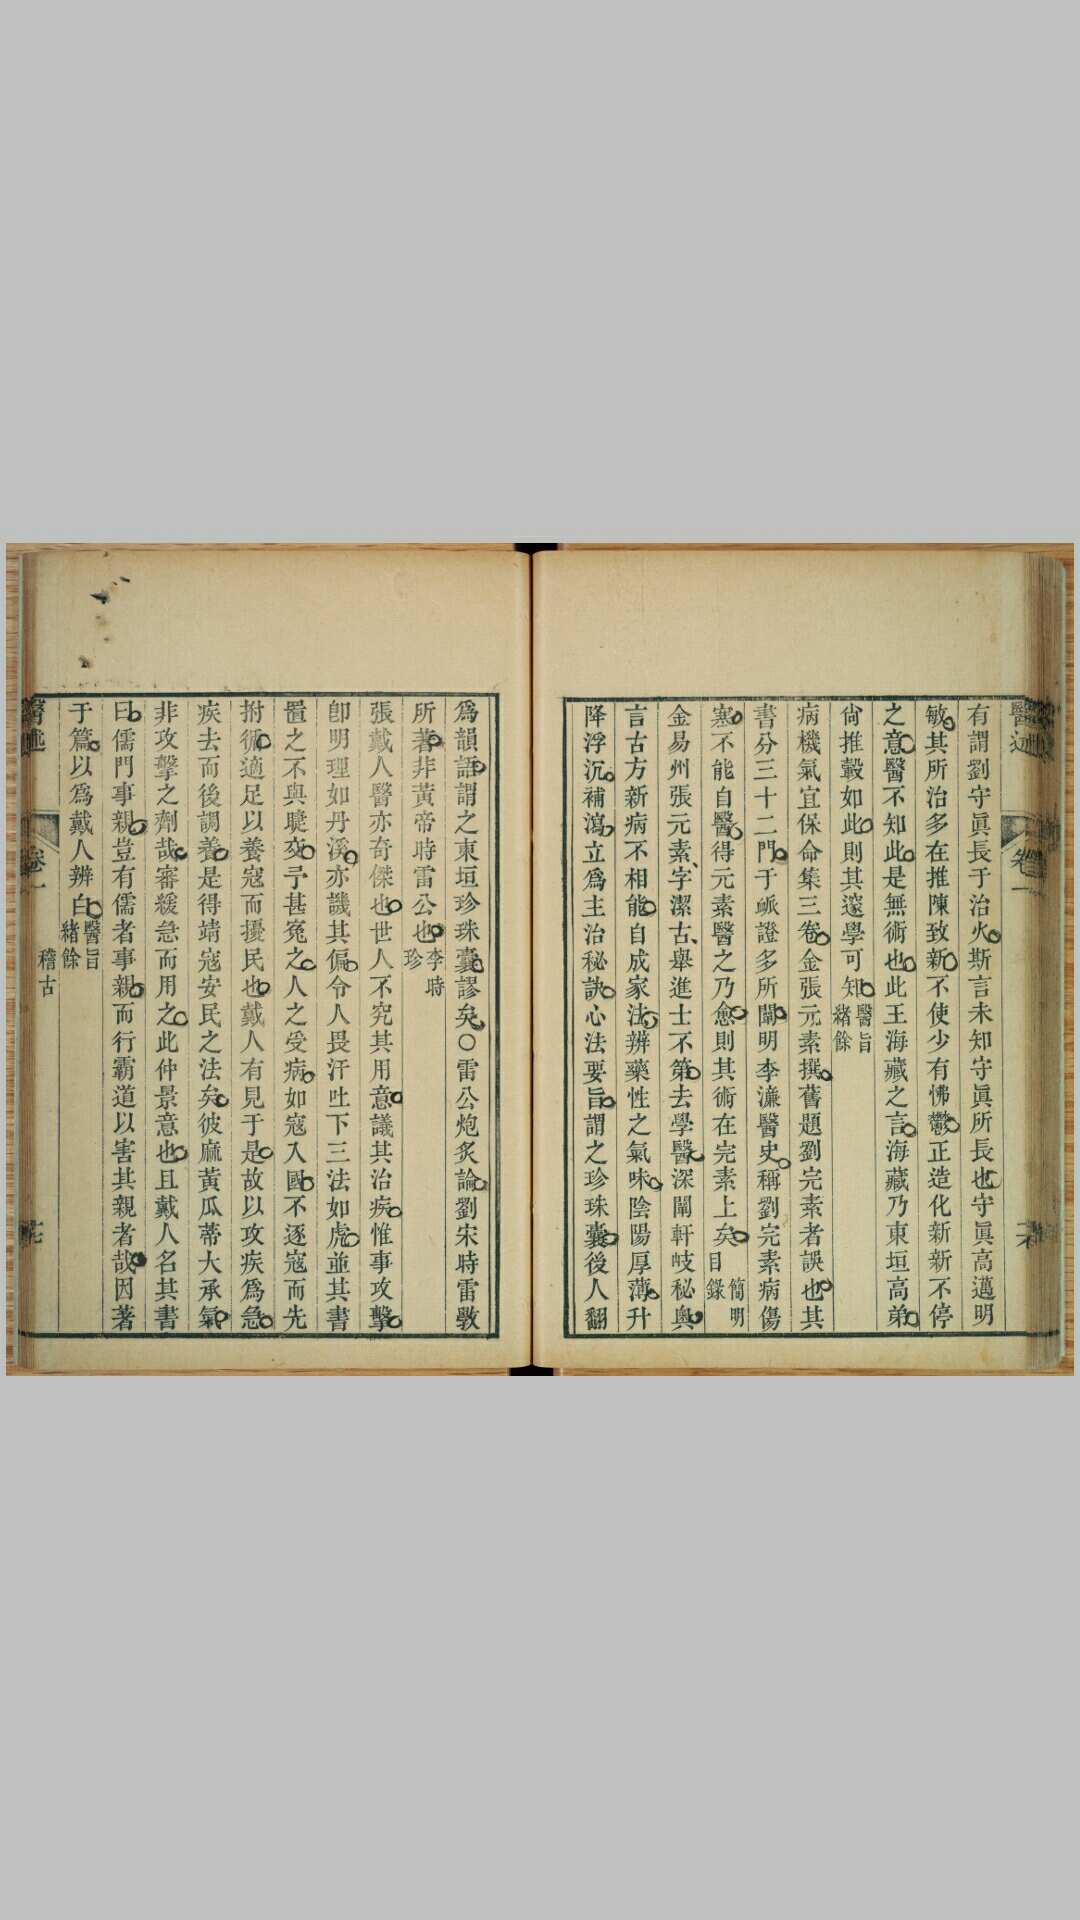 醫述
卷一
有謂劉守眞長于治火斯言未知守眞所長也守眞高邁明
敏其所治多在推陳致新不使少有怫鬱正造化新新不停
之意醫不知此是無術也此王海藏之言海藏乃東垣高弟
尙推轂如此則其邃學可知醫旨
緒餘
病機氣宜保命集三卷金張元素撰舊題劉完素者誤也其
書分三十二門于衇證多所闡明李濂醫史稱劉完素病傷
寒不能自醫得元素醫之乃愈則其術在完素上矣簡明
目錄
金易州張元素字潔古舉進士不第去學醫深闡軒岐秘奧
言古方新病不相能自成家法辨藥性之氣味陰陽厚薄升
降浮沉補瀉立爲主治秘訣心法要旨謂之珍珠囊後人翻
爲韻語謂之東垣珍珠囊謬矣〇雷公炮炙論劉宋時雷斆
所著非黃帝時雷公也李時
珍
張戴人醫亦奇傑也世人不究其用意議其治疾惟事攻擊
卽明理如丹溪亦譏其偏令人畏汗吐下三法如虎並其書
置之不與睫交予甚冤之人之受病如寇入國不逐寇而先
拊循適足以養寇而擾民也戴人有見于是故以攻疾爲急
疾去而後調養是得靖寇安民之法矣彼麻黃瓜蒂大承氣
非攻擊之劑哉審緩急而用之此仲景意也且戴人名其書
曰儒門事親豈有儒者事親而行霸道以害其親者哉因著
于篇以爲戴人辨白醫旨
緒餘
稽古
醫述
卷一
七